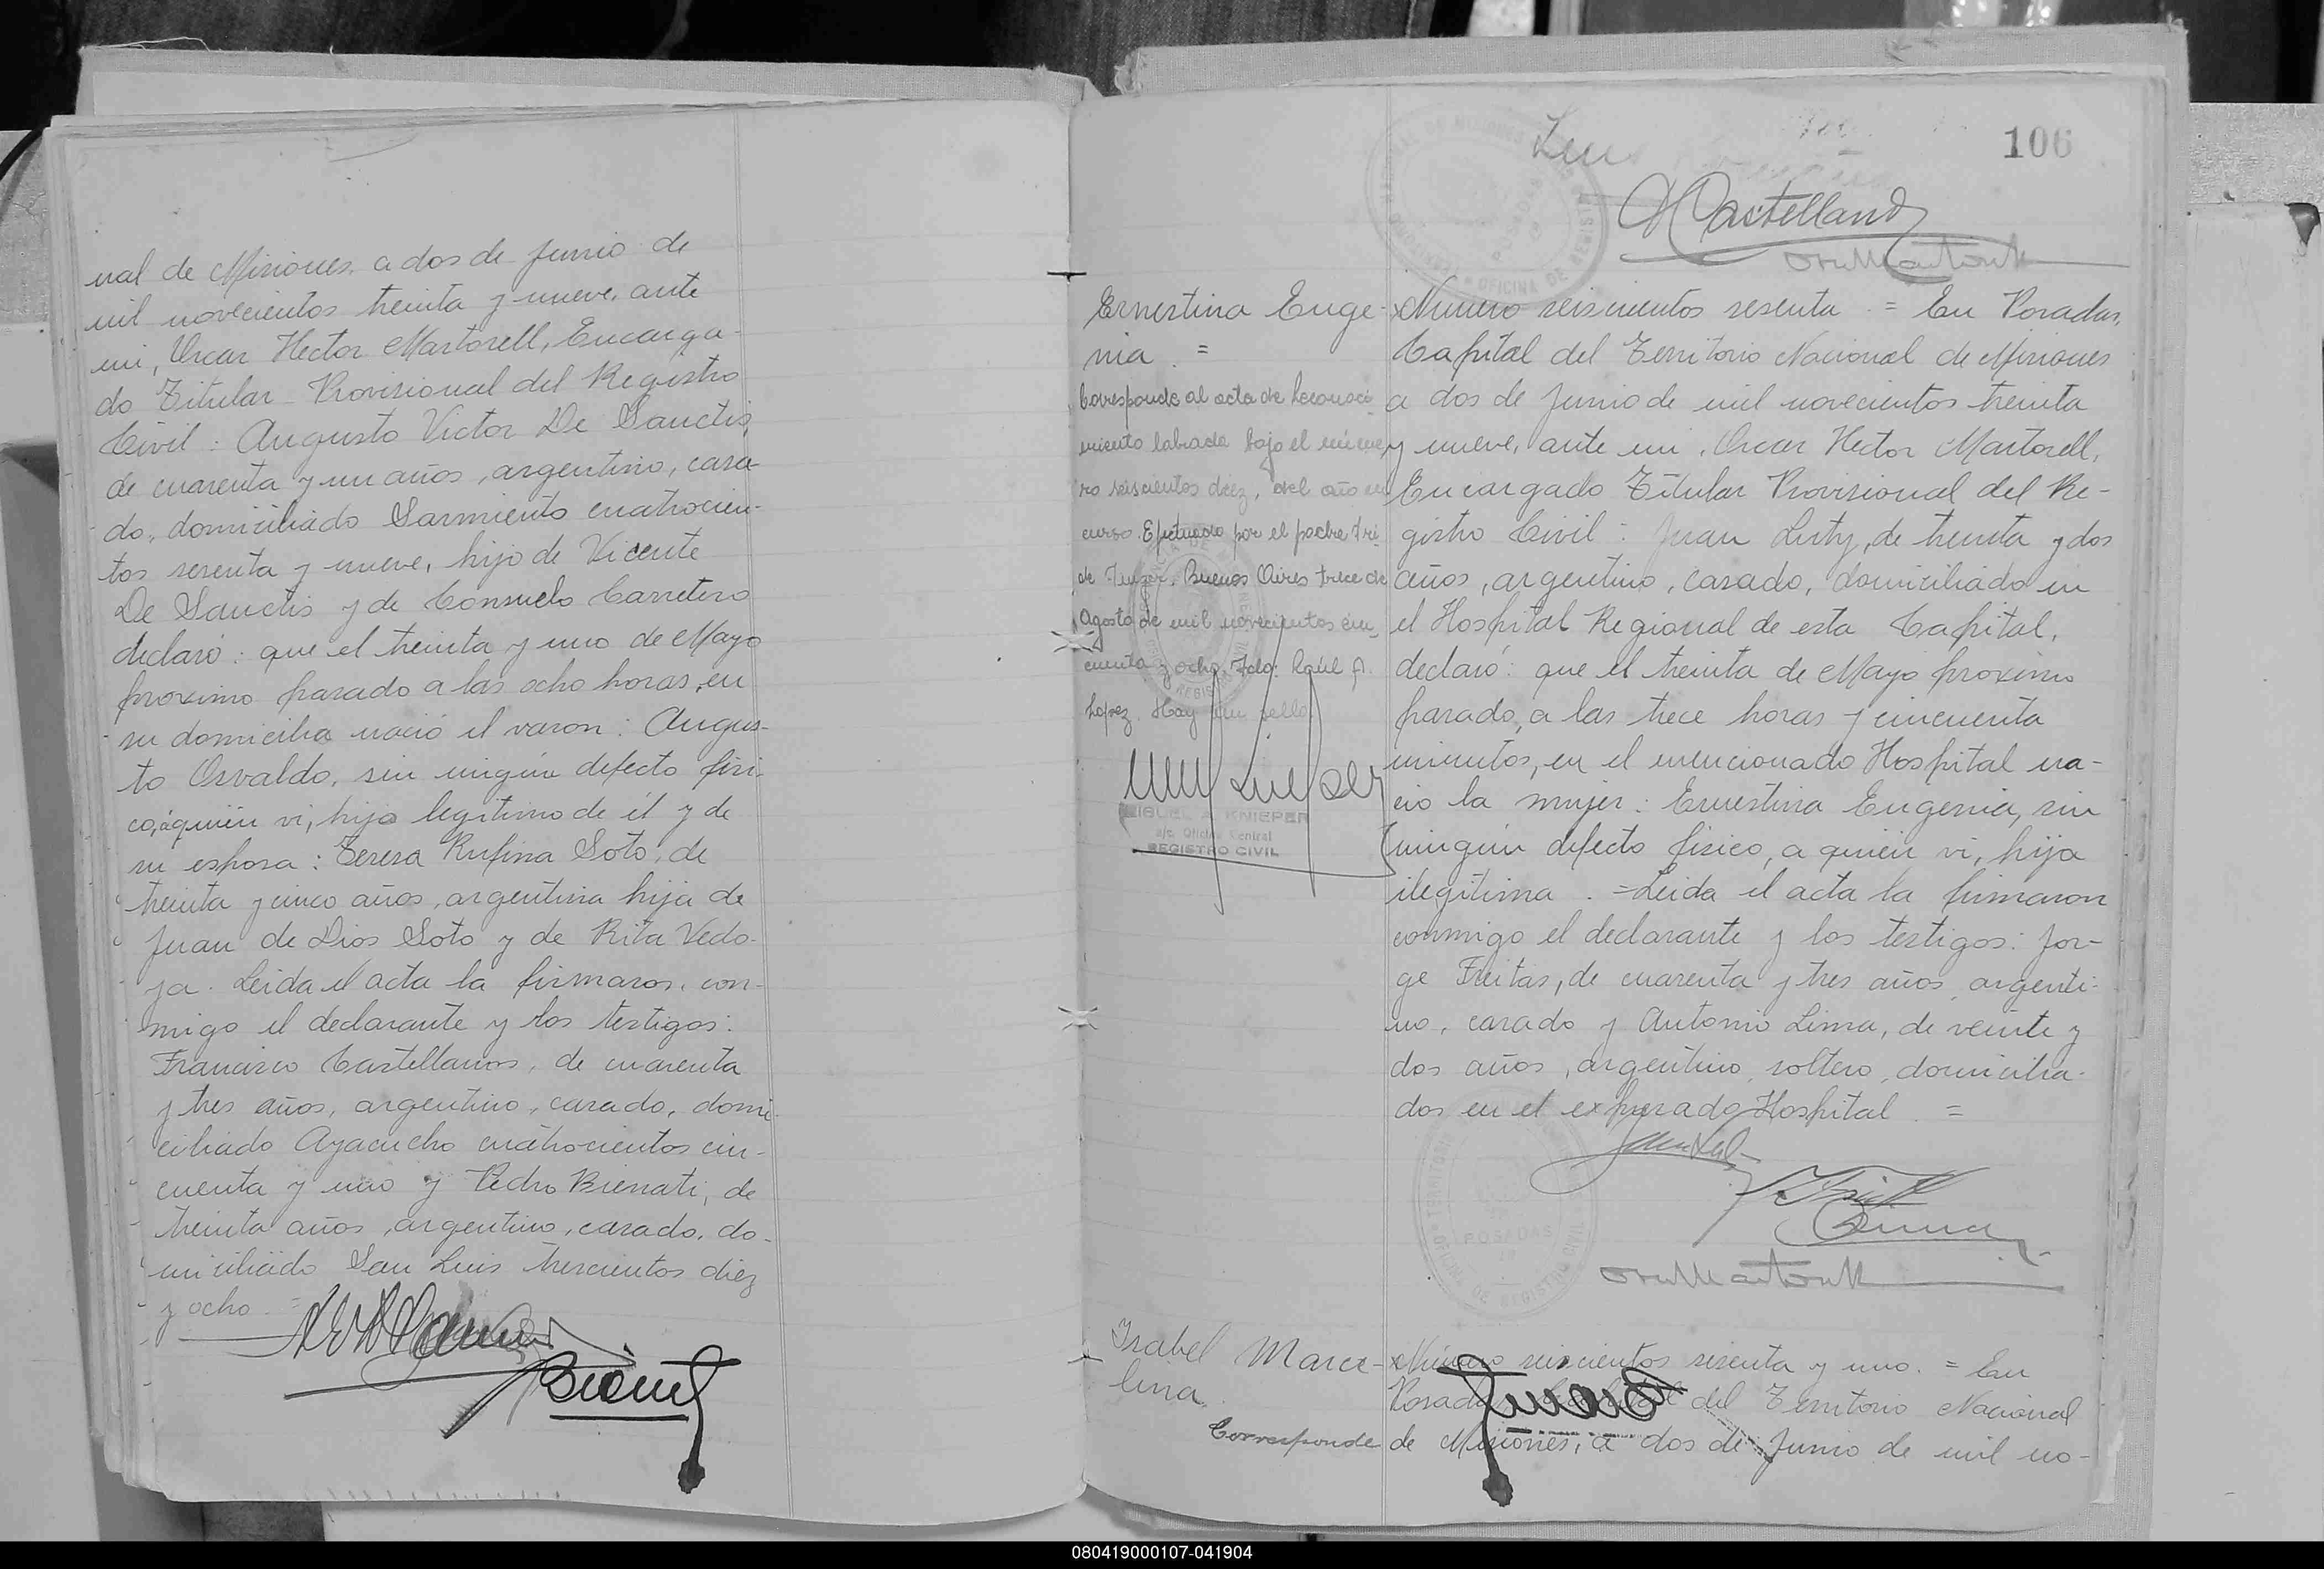 nal de Misiones, a dos de Junio de
mil novecientos treinta y nueve, ante
mi, Oscar Hector Martorell, Encarga-
do Titular Provisional del Registro
Civil: Augusto Victor De Sanctis,
de cuarenta y un años, argentino, casa-
do, domiciliado Sarmiento cuatrocien-
tos sesenta y nueve, hijo de Vicente
De Sanctis y de Consuelo Carretero
declaró: que el treinta y uno de Mayo
proximo pasado a las ocho horas, en
su domicilio nació el varon: Augus-
to Osvaldo, sin ningún defecto fisi-
co, a quién vi, hijo legítimo de él y de
su esposa: Teresa Rufina Soto, de
treinta y cinco años, argentina hija de
Juan de Dios Soto y de Rita Vedo-
ya. Leida el acta la firmaron, con-
migo el declarante y los testigos:
Francisco Castellanos, de cuarenta
y tres años, argentino, casado, domi-
ciliado Ayacucho cuatrocientos cin-
cuenta y uno y Pedro Bienati, de
treinta años, argentino, casado, do-
miciliado San Luis trescientos diez
y ocho. =
106
Castellano
Ernestina Euge-
nia. =
Corresponde al acta de Reconoci-
miento labrada bajo el núme-
ro seiscientos diez, del año en
curso. Efectuado por el padre
Buenos Aires trece de
Agosto de mil novecientos cin-
cuenta y ocho. Fdo: Raúl A.
Lopez. Hay un sello.
MIGUEL A. KNIEPER
a/c Oficina Central
REGISTRO CIVIL
Numero seiscientos sesenta. = En Posadas,
Capital del Territorio Nacional de Misiones
a dos de Junio de mil novecientos treinta
y nueve, ante mi, Oscar Hector Martorell,
Encargado Titular Provisional del Re-
gistro Civil: Juan Lusty, de treinta y dos
años, argentino, casado, domiciliado en
el Hospital Regional de esta Capital,
declaró: que el treinta de Mayo proximo
pasado, a las trece horas y cincuenta
minutos, en el mencionado Hospital na-
ció la mujer: Ernestina Eugenia, sin
ningún defecto fisico, a quién vi, hija
ilegitima. = Leida el acta la firmaron
conmigo el declarante y los testigos: Jor-
ge Freitas, de cuarenta y tres años, argenti-
no, casado y Antonio Lima, de veinte y
dos años, argentino, soltero, domicilia-
dos en el expresado Hospital. =
POSADAS
Isabel Marce-
lina.
Corresponde
Número seiscientos sesenta y uno. = En
Posadas, Capital del Territorio Nacional
de Misiones, a dos de Junio de mil no-
080419000107-041904